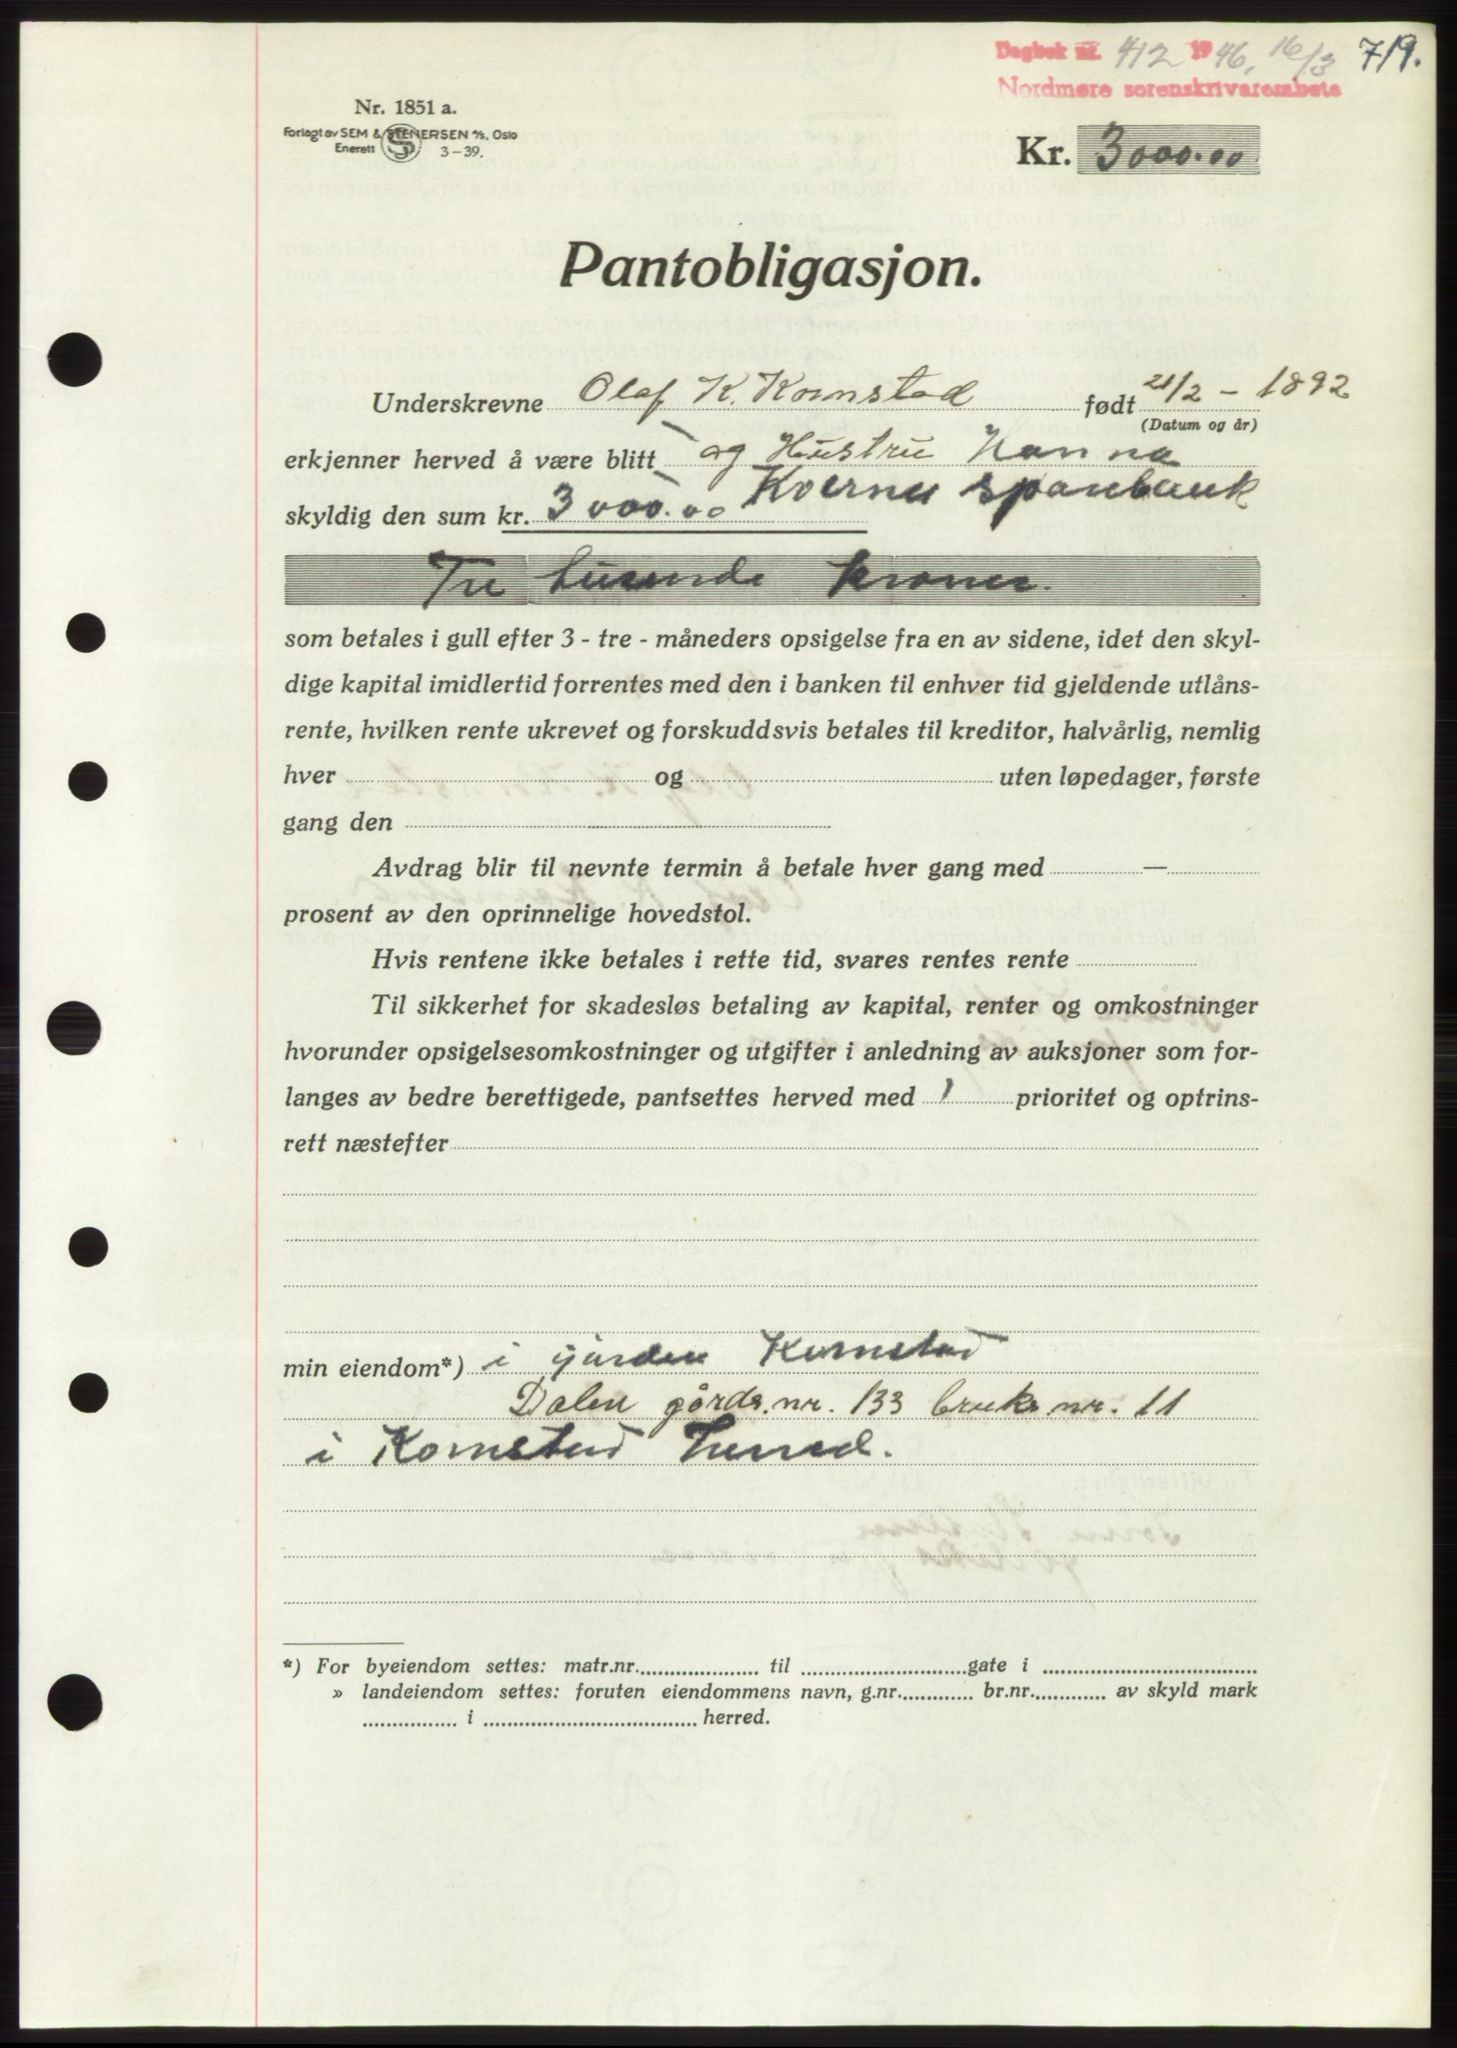 Dagbok nr. 412 1946, 16/3 719.
Nordmøre sorenskrivarembete
Nr. 1851 a.
Forlagt av SEM & STENERSEN A/S, Oslo
Enerett 3-39.
Kr. 3000.00
Pantobligasjon.
Underskrevne Olaf K. Kornstad født 21/2 - 1892
(Datum og år)
erkjenner herved å være blitt og Hustru Hanna
skyldig den sum kr. 3000.00 Kvernes sparebank
Tre tusende kroner.
som betales i gull efter 3 - tre - måneders opsigelse fra en av sidene, idet den skyl-
dige kapital imidlertid forrentes med den i banken til enhver tid gjeldende utlåns-
rente, hvilken rente ukrevet og forskuddsvis betales til kreditor, halvårlig, nemlig
hver og uten løpedager, første
gang den
Avdrag blir til nevnte termin å betale hver gang med —
prosent av den oprinnelige hovedstol.
Hvis rentene ikke betales i rette tid, svares rentes rente
Til sikkerhet for skadesløs betaling av kapital, renter og omkostninger
hvorunder opsigelsesomkostninger og utgifter i anledning av auksjoner som for-
langes av bedre berettigede, pantsettes herved med 1 prioritet og optrins-
rett næstefter
min eiendom*) i gården Kornstad
Dalen gårds. nr. 133 bruks nr. 11
i Kornstad herred.
*) For byeiendom settes: matr.nr. til gate i
» landeiendom settes: foruten eiendommens navn, g.nr. br.nr. av skyld mark
i herred.